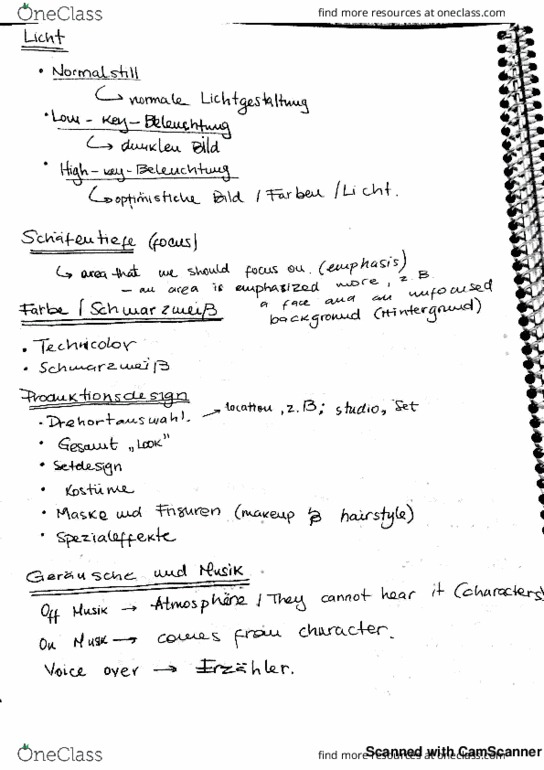 OneClass find more resources at oneclass.com
Licht
• Normalstill
↳ normale Lichtgestaltung
• Low-key-Beleuchtung
↳ dunklen Bild
• High-key-Beleuchtung
↳ optimistiche Bild / Farben / Licht.
Schäfentiefe (focus)
↳ area that we should focus on. (emphasis)
- an area is emphasized more, z.B
a face and an unfocused
background (Hintergrund)
Farbe / Schwarzweiß
• Technicolor
• Schwarzweiß
Produktionsdesign
• Drehortauswahl. → location, z.B; studio, Set
• Gesamt „Look"
• Setdesign
• Kostüme
• Maske und Frisuren (makeup & hairstyle)
• Spezialeffekte
Geräusche und Musik
Off Musik → Atmosphäre / They cannot hear it (characters)
On Musk → comes from character.
Voice over → Erzähler.
Scanned with CamScanner
OneClass find more resources at oneclass.com